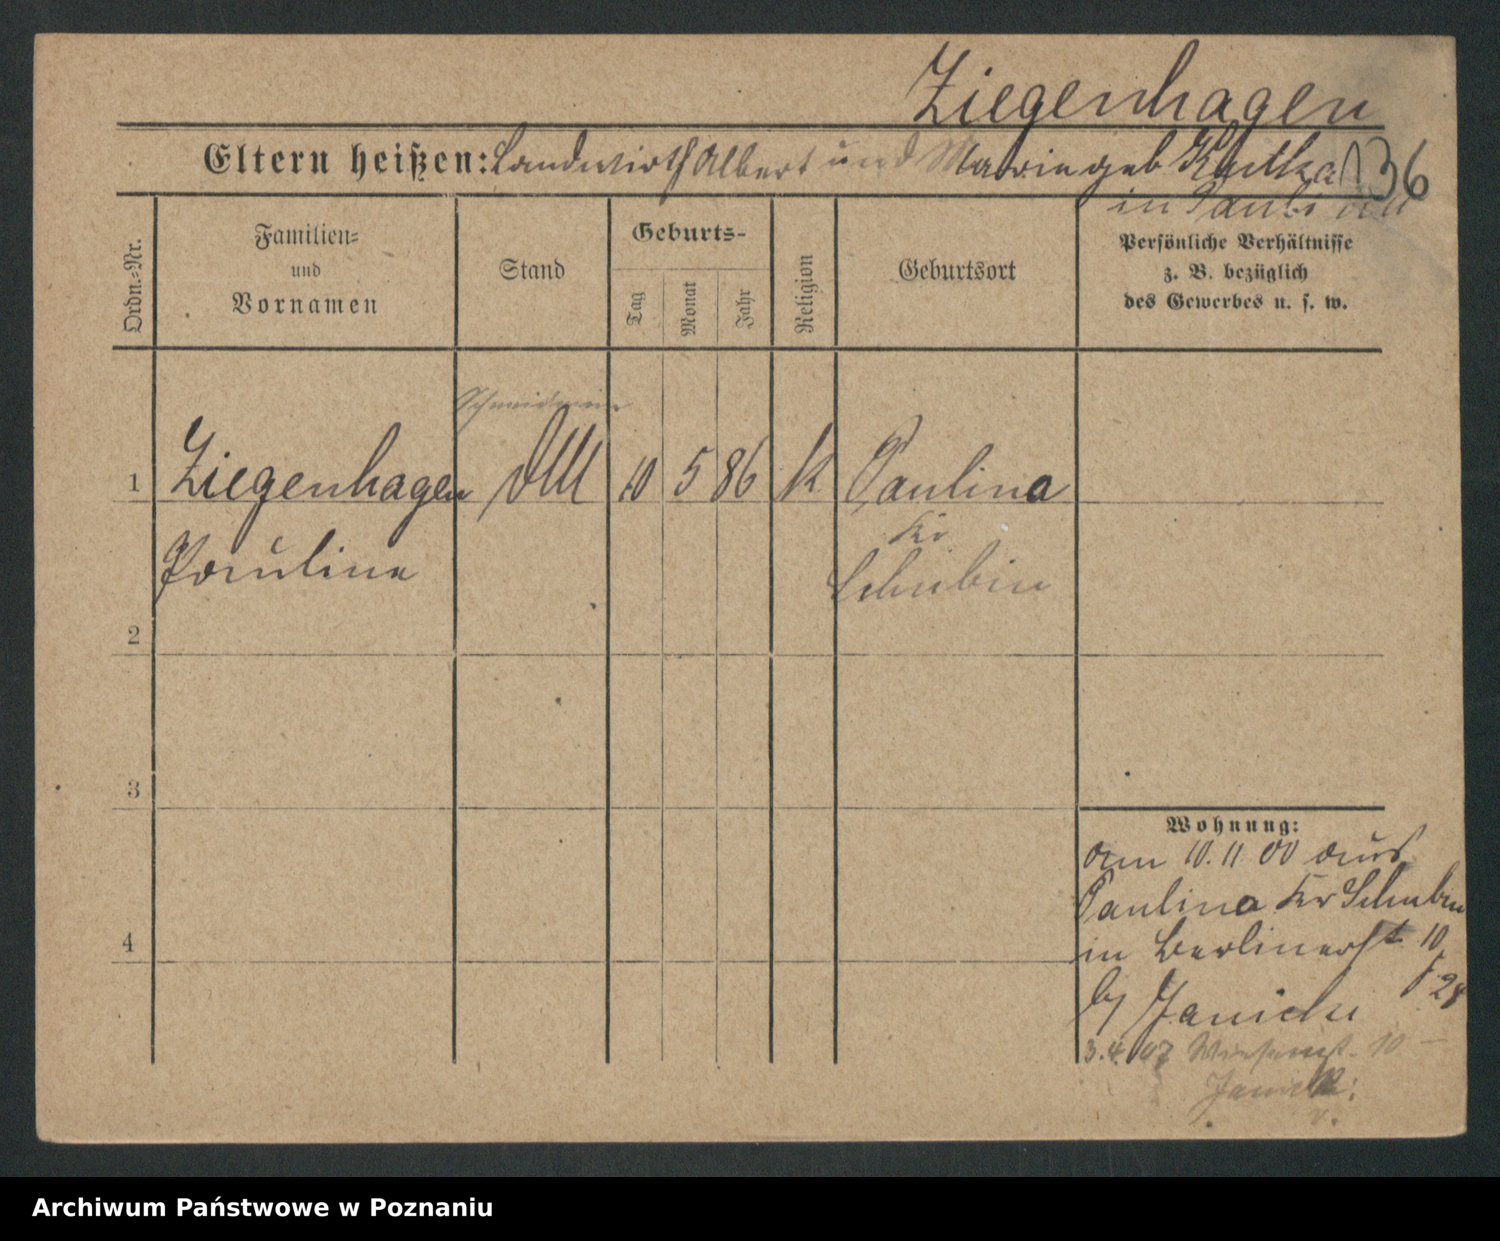 Ziegenhagen
Eltern heißen: Landwirth Albert und Marie geb 136
in
Ordn.-Nr.
Familien-
und
Vornamen
Stand
Geburts-
Tag
Monat
Jahr
Religion
Geburtsort
Persönliche Verhältnisse
z. B. bezüglich
des Gewerbes u. s. w.
1 Ziegenhagen 10 5 86 k Paulina
Pauline
Kr
Schubin
2
3
4
Wohnung:
am 10. 11 00 aus
Paulina Kr Schubin
in Berlinerst 10
b/ Janicki 28
3. 4. 07 10